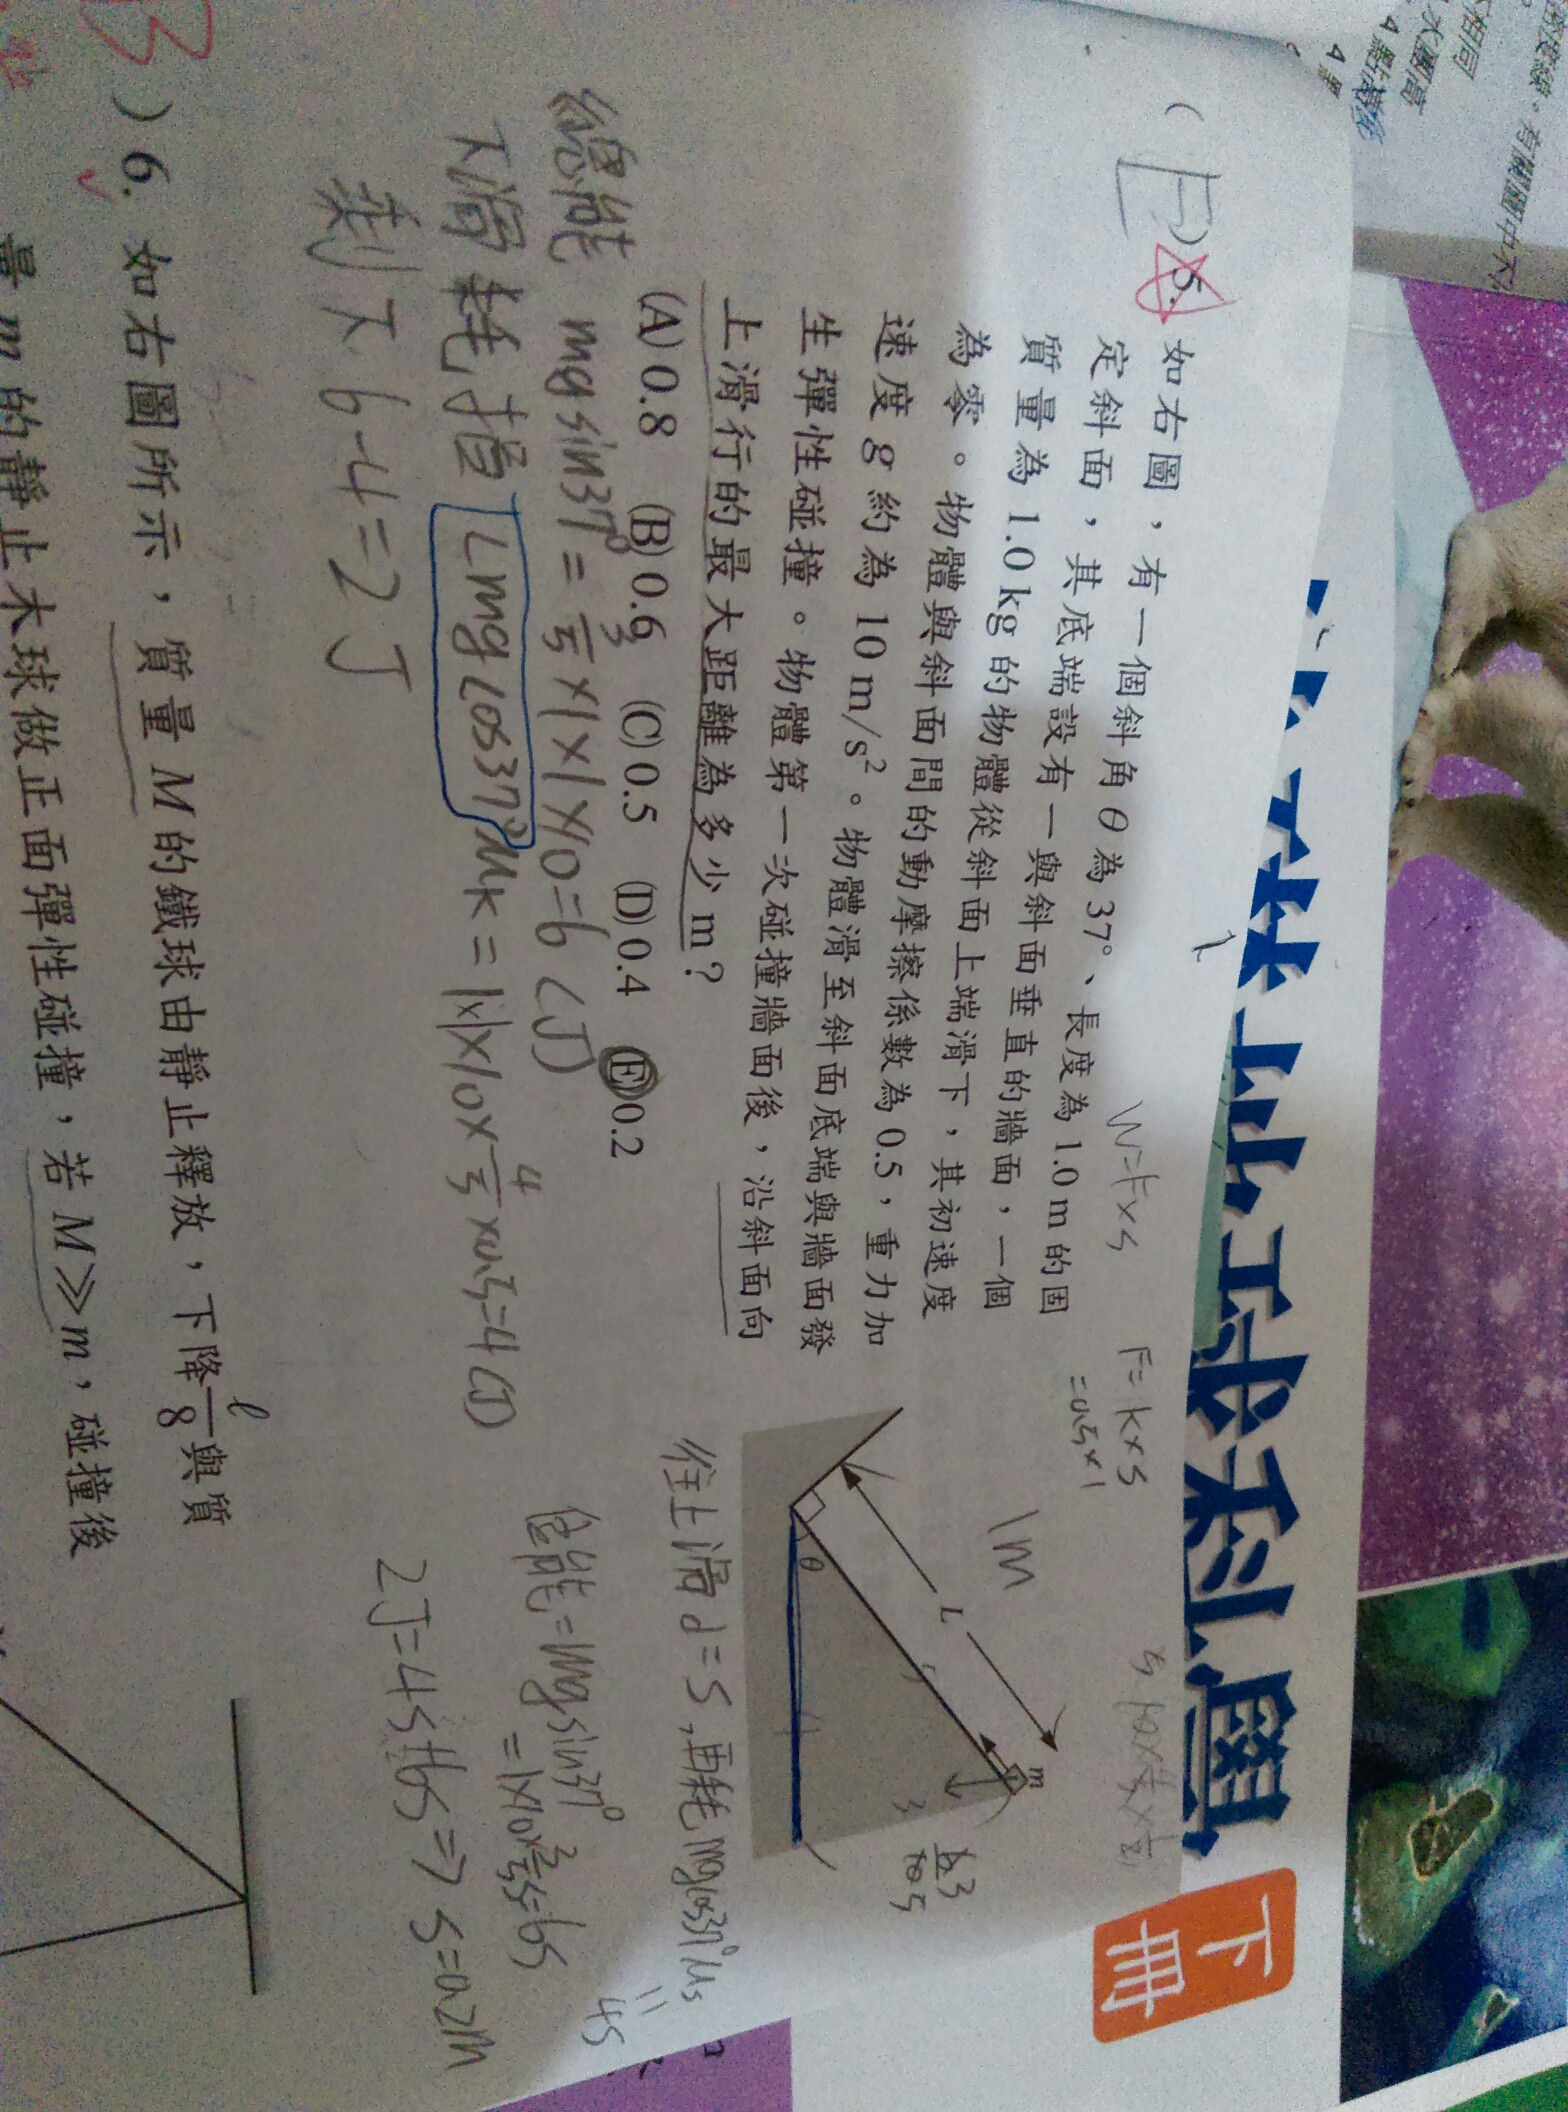 (E)5. 如右圖，有一個斜角θ為37°、長度為1.0m的固
定斜面，其底端設有一與斜面垂直的牆面，一個
質量為1.0kg的物體從斜面上端滑下，其初速度
為零。物體與斜面間的動摩擦係數為0.5，重力加
速度g約為10m/s²。物體滑至斜面底端與牆面發
生彈性碰撞。物體第一次碰撞牆面後，沿斜面向
上滑行的最大距離為多少m?
(A)0.8 (B)0.6 (C)0.5 (D)0.4 (E)0.2
W=F×S
F=k×s
=0.5×1
1m
L
m
θ
總能 mg sin37°=3/5×1×1×10=6(J)
下滑耗損 Lmg cos37° μk=1×1×10×4/5×0.5=4(J)
剩下 6-4=2J
往上滑d=S,再耗mg cos37°μs
=4S
位能=mg sin37°
=1×10×3/5 S=6S
2J=4S+6S => S=0.2m
)6. 如右圖所示，質量M的鐵球由靜止釋放，下降ℓ/8與質
量m的靜止木球做正面彈性碰撞，若M≫m，碰撞後
下冊